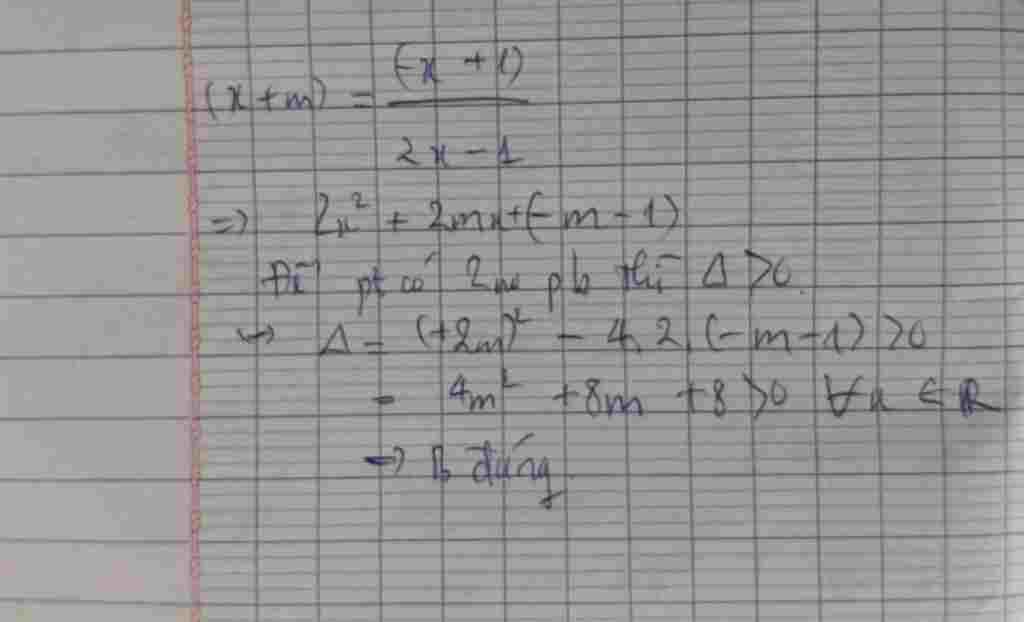 (x + m) = (-x + 1) / 2x - 1
=> 2x² + 2mx + (-m - 1)
Để pt có 2 no pb thì Δ > 0.
↪ Δ = (+2m)² - 4.2.(-m-1) > 0
= 4m² + 8m + 8 > 0 ∀x ∈ R
=> B đúng